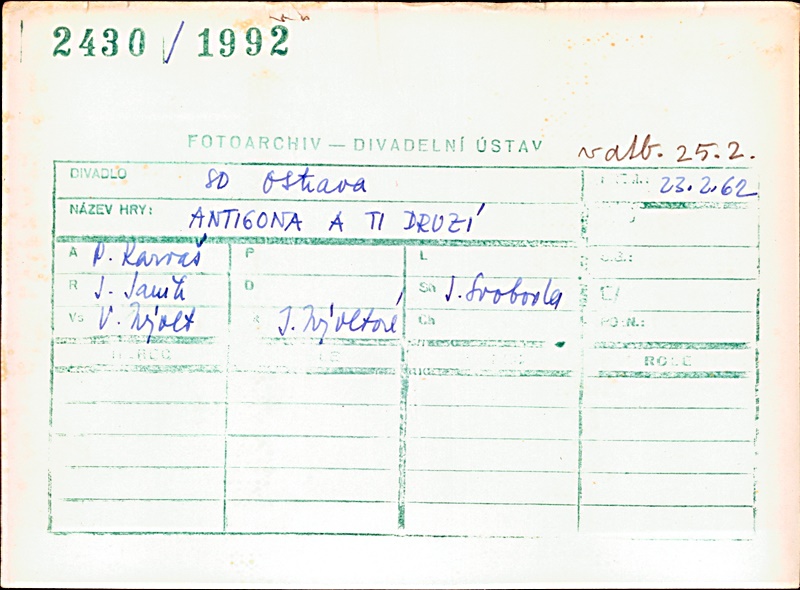 2430 / 1992
FOTOARCHIV — DIVADELNÍ ÚSTAV
25.2.
DIVADLO SD Ostrava 23.2.62
NÁZEV HRY: ANTIGONA A TI DRUZÍ
A P. Karvaš P L
R J. Janík D Sh J. Svoboda
Vs V. Nývlt K J. Nývltová Ch POZN.:
HEREC ROLE